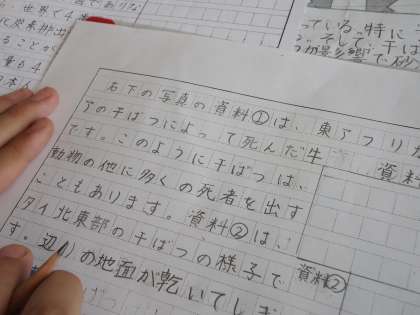 世界で4
炭素排出
ることが
量も4
っている。特に
る。そして、干ば
影響で砂
右下の写真の資料①は、東アフリカ
アの干ばつによって死んだ牛
です。このように干ばつは、
動物の他に多くの死者を出す
こともあります。資料②は、
タイ北東部の干ばつの様子で
す。辺りの地面が乾いてしま
資料
資料②